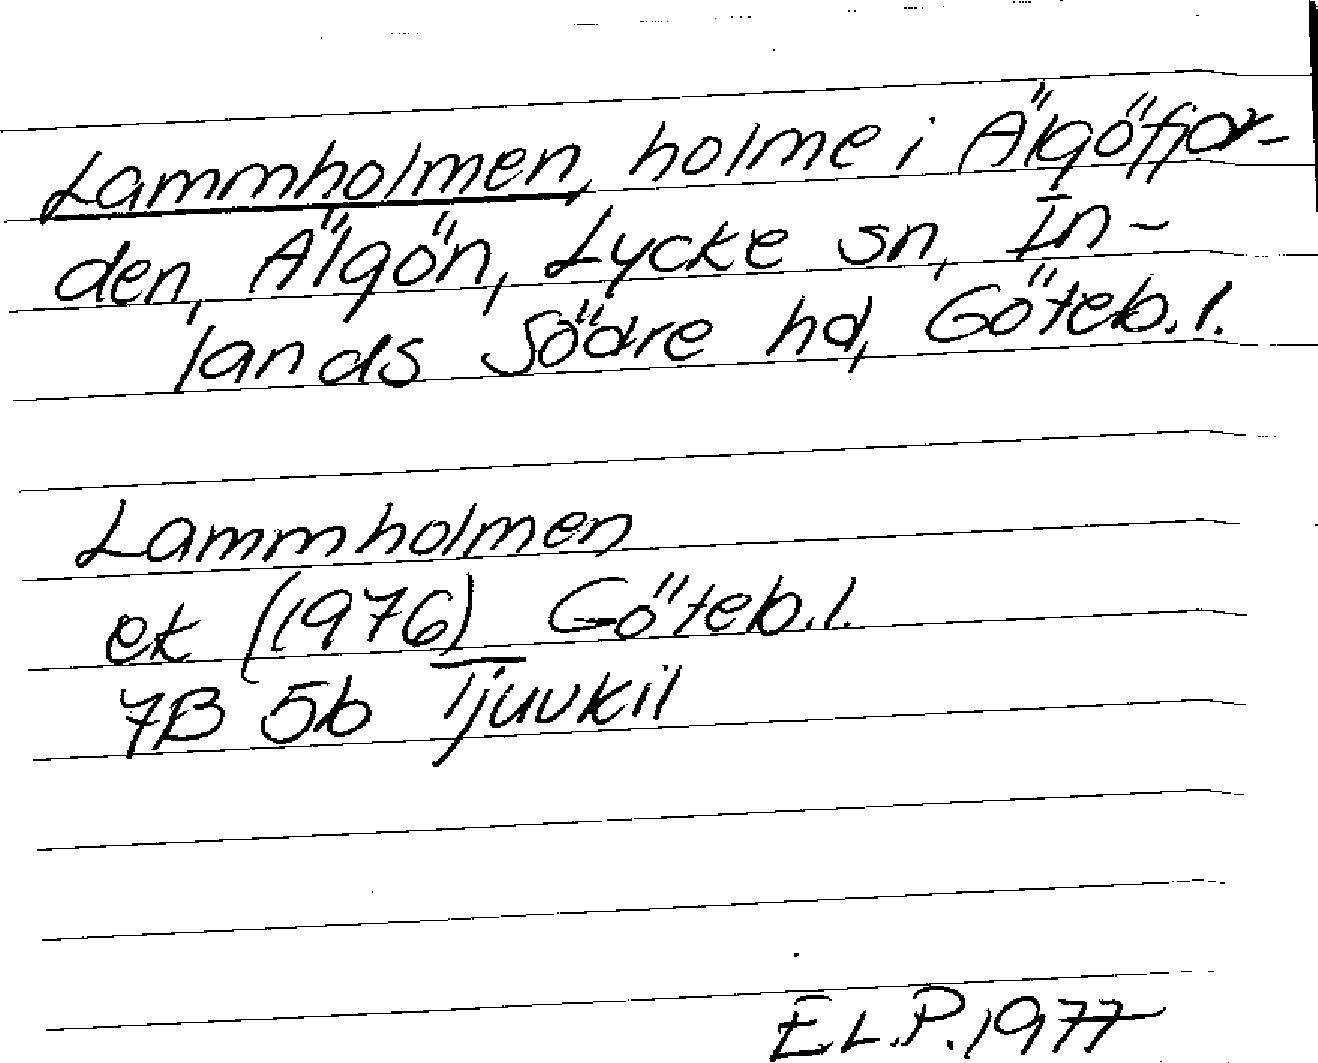 Lammholmen, holme i Älgöfjor-
den, Älgön, Lycke sn, In-
lands Södre hd, Göteb.l.
Lammholmen
ek (1976) Göteb.l.
7B 5b Tjuvkil
E.L.P. 1977